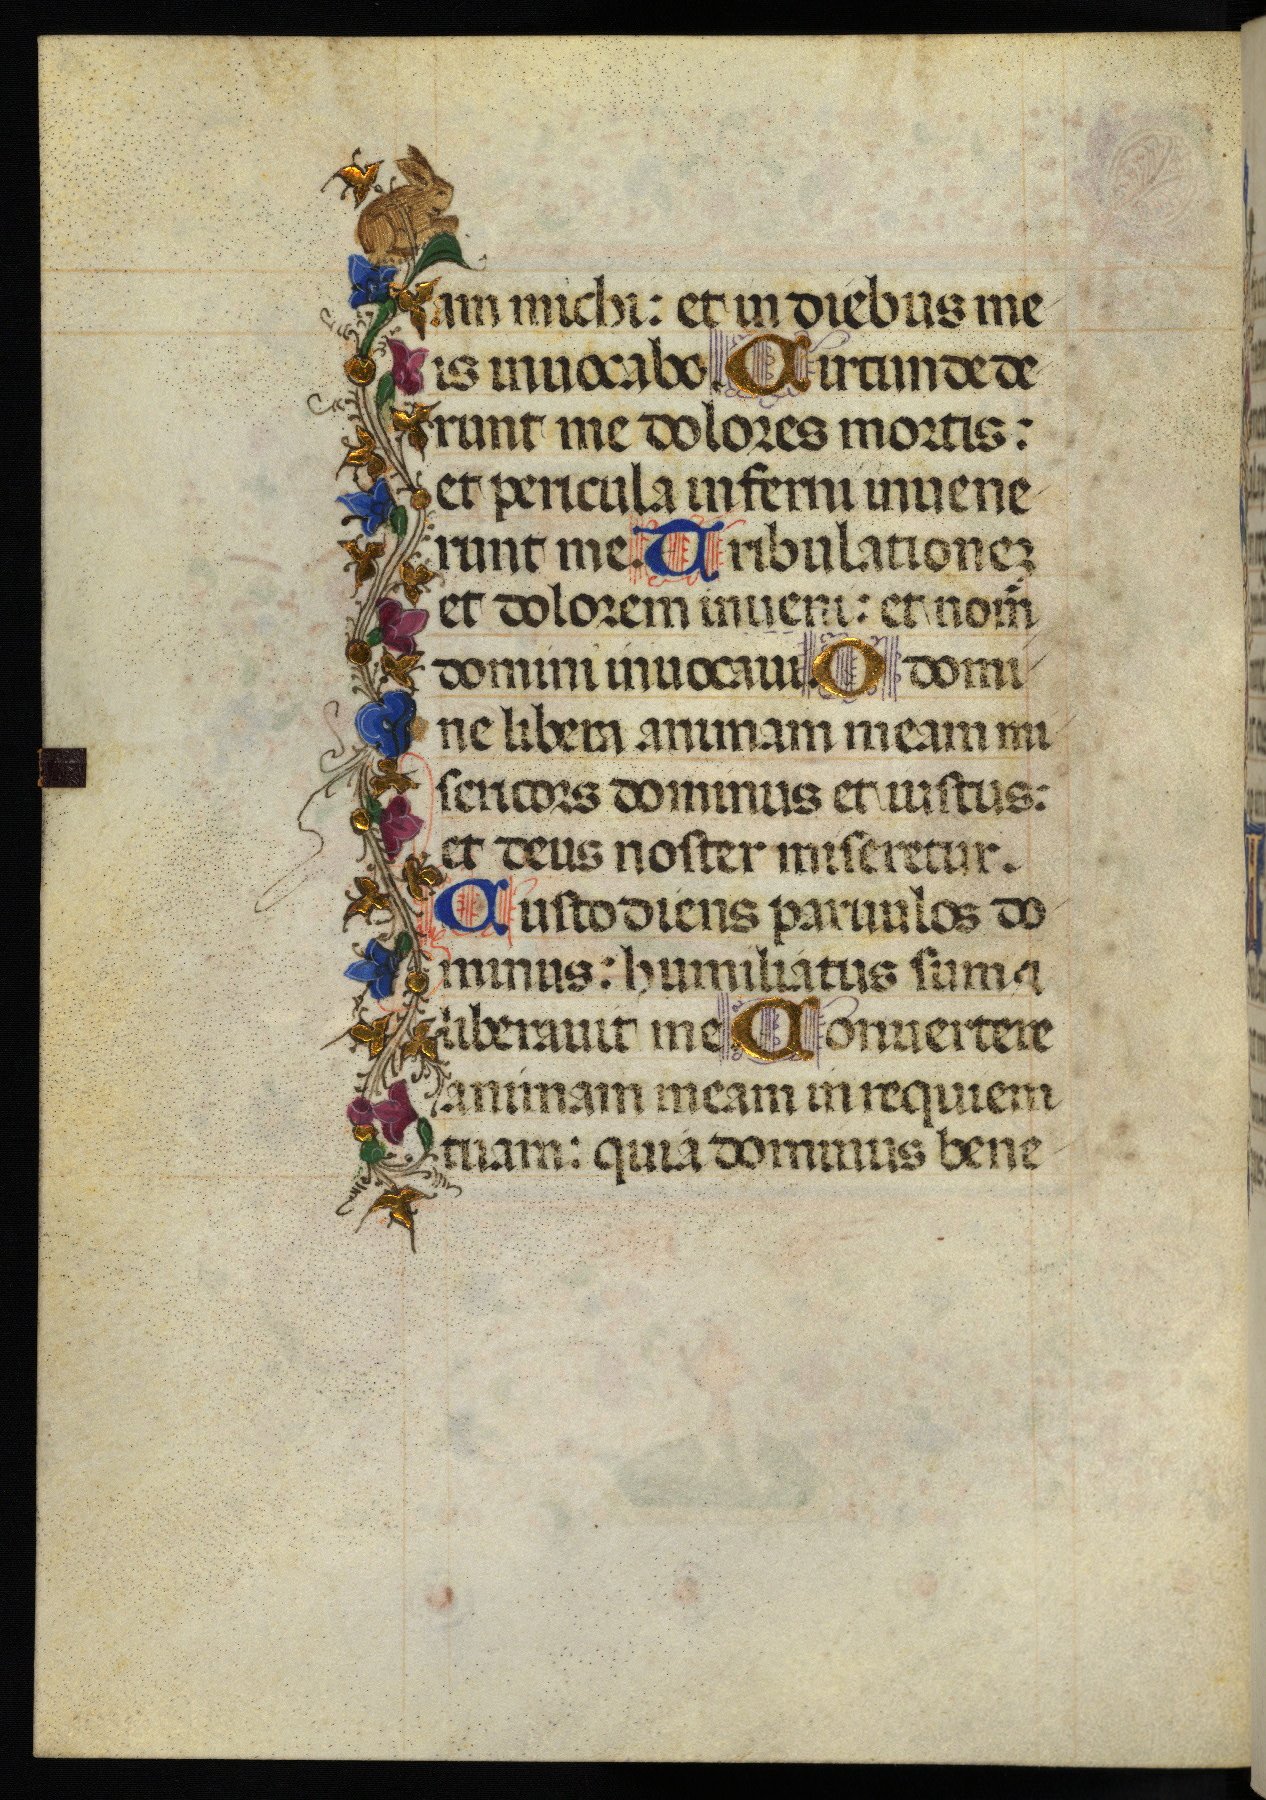 am michi: et in diebus me
is inuocabo. Circundede
runt me dolores mortis:
et pericula inferni inuene
runt me. Tribulationez
et dolorem inueni: et nom̄
domini inuocaui. O domi
ne libera animam meam mi
sericors dominus et iustus:
et deus noster miseretur.
Custodiens paruulos do
minus: humiliatus sum ⁊
liberauit me. Conuertere
animam meam in requiem
tuam: quia dominus bene